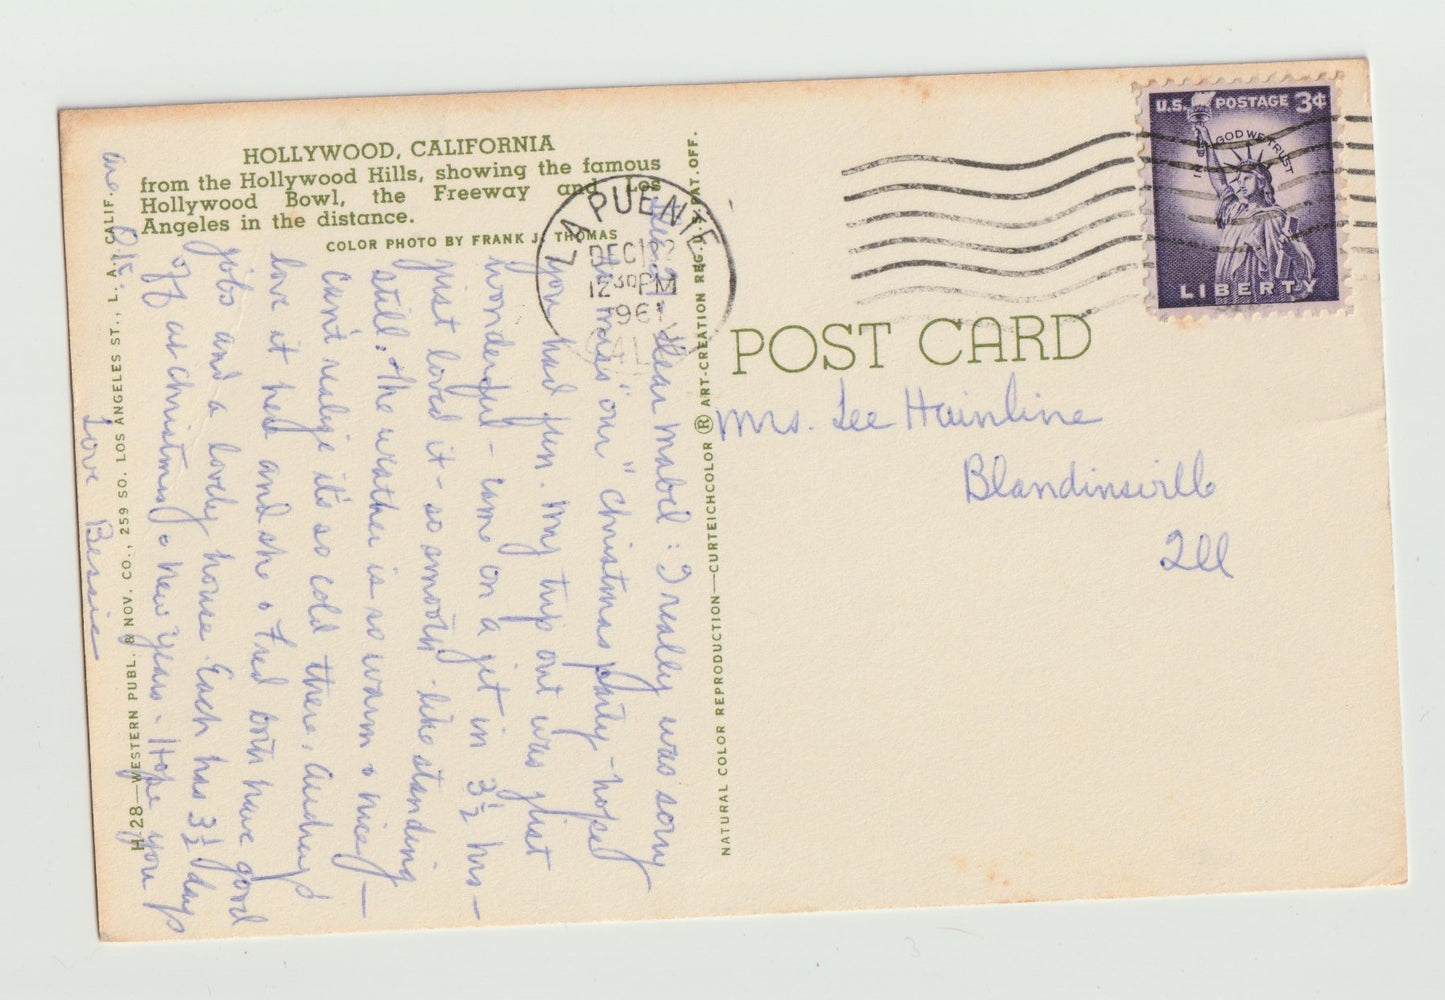 HOLLYWOOD, CALIFORNIA
from the Hollywood Hills, showing the famous
Hollywood Bowl, the Freeway and Los
Angeles in the distance.
COLOR PHOTO BY FRANK J. THOMAS
LA PUENTE
DEC 12
12 30 PM
1961
CALIF
U.S. POSTAGE 3¢
IN GOD WE TRUST
LIBERTY
POST CARD
Mrs. Lee Hainline
Blandinsville
Ill
Dear Mabel: I really was sorry
miss our "Christmas party - hope
you had fun. My trip out was just
wonderful - came on a jet in 3½ hrs -
just loved it - so smooth - like standing
still. The weather is so warm & nice -
can't realize it's so cold there. Audrey
love it here and she & Fred both have good
jobs and a lovely house. Each has 3½ days
off at Christmas & New Years. Hope you
are O.K.
Love Bessie
H 28—WESTERN PUBL. & NOV. CO., 259 SO. LOS ANGELES ST., L. A., CALIF.
NATURAL COLOR REPRODUCTION—CURTEICHCOLOR ® ART-CREATION REG. U.S. PAT. OFF.